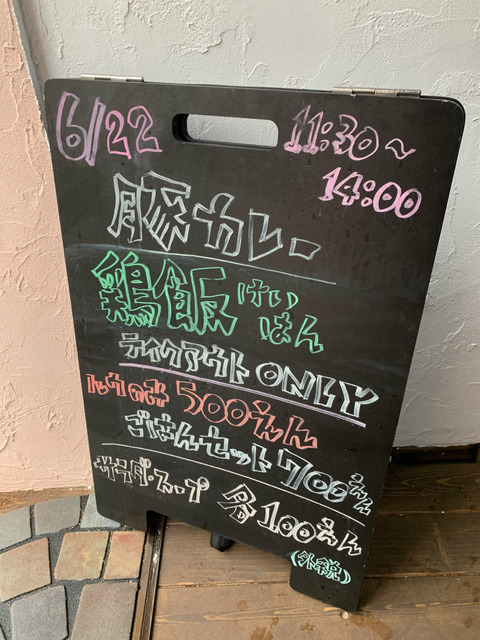 6/22
11:30〜
14:00
豚カレー
鶏飯 けいはん
テイクアウト ONLY
ルウのみ 500えん
ごはんセット 700えん
サラダ・スープ 各100えん
(外税)